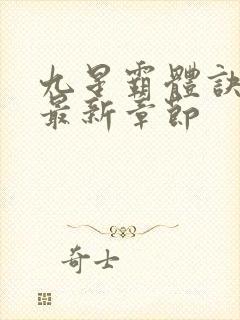 九星霸體訣
最新章節
奇士